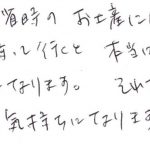 省時の お土産に
持って行くと 本当に
になります。 それ
気持ちになります